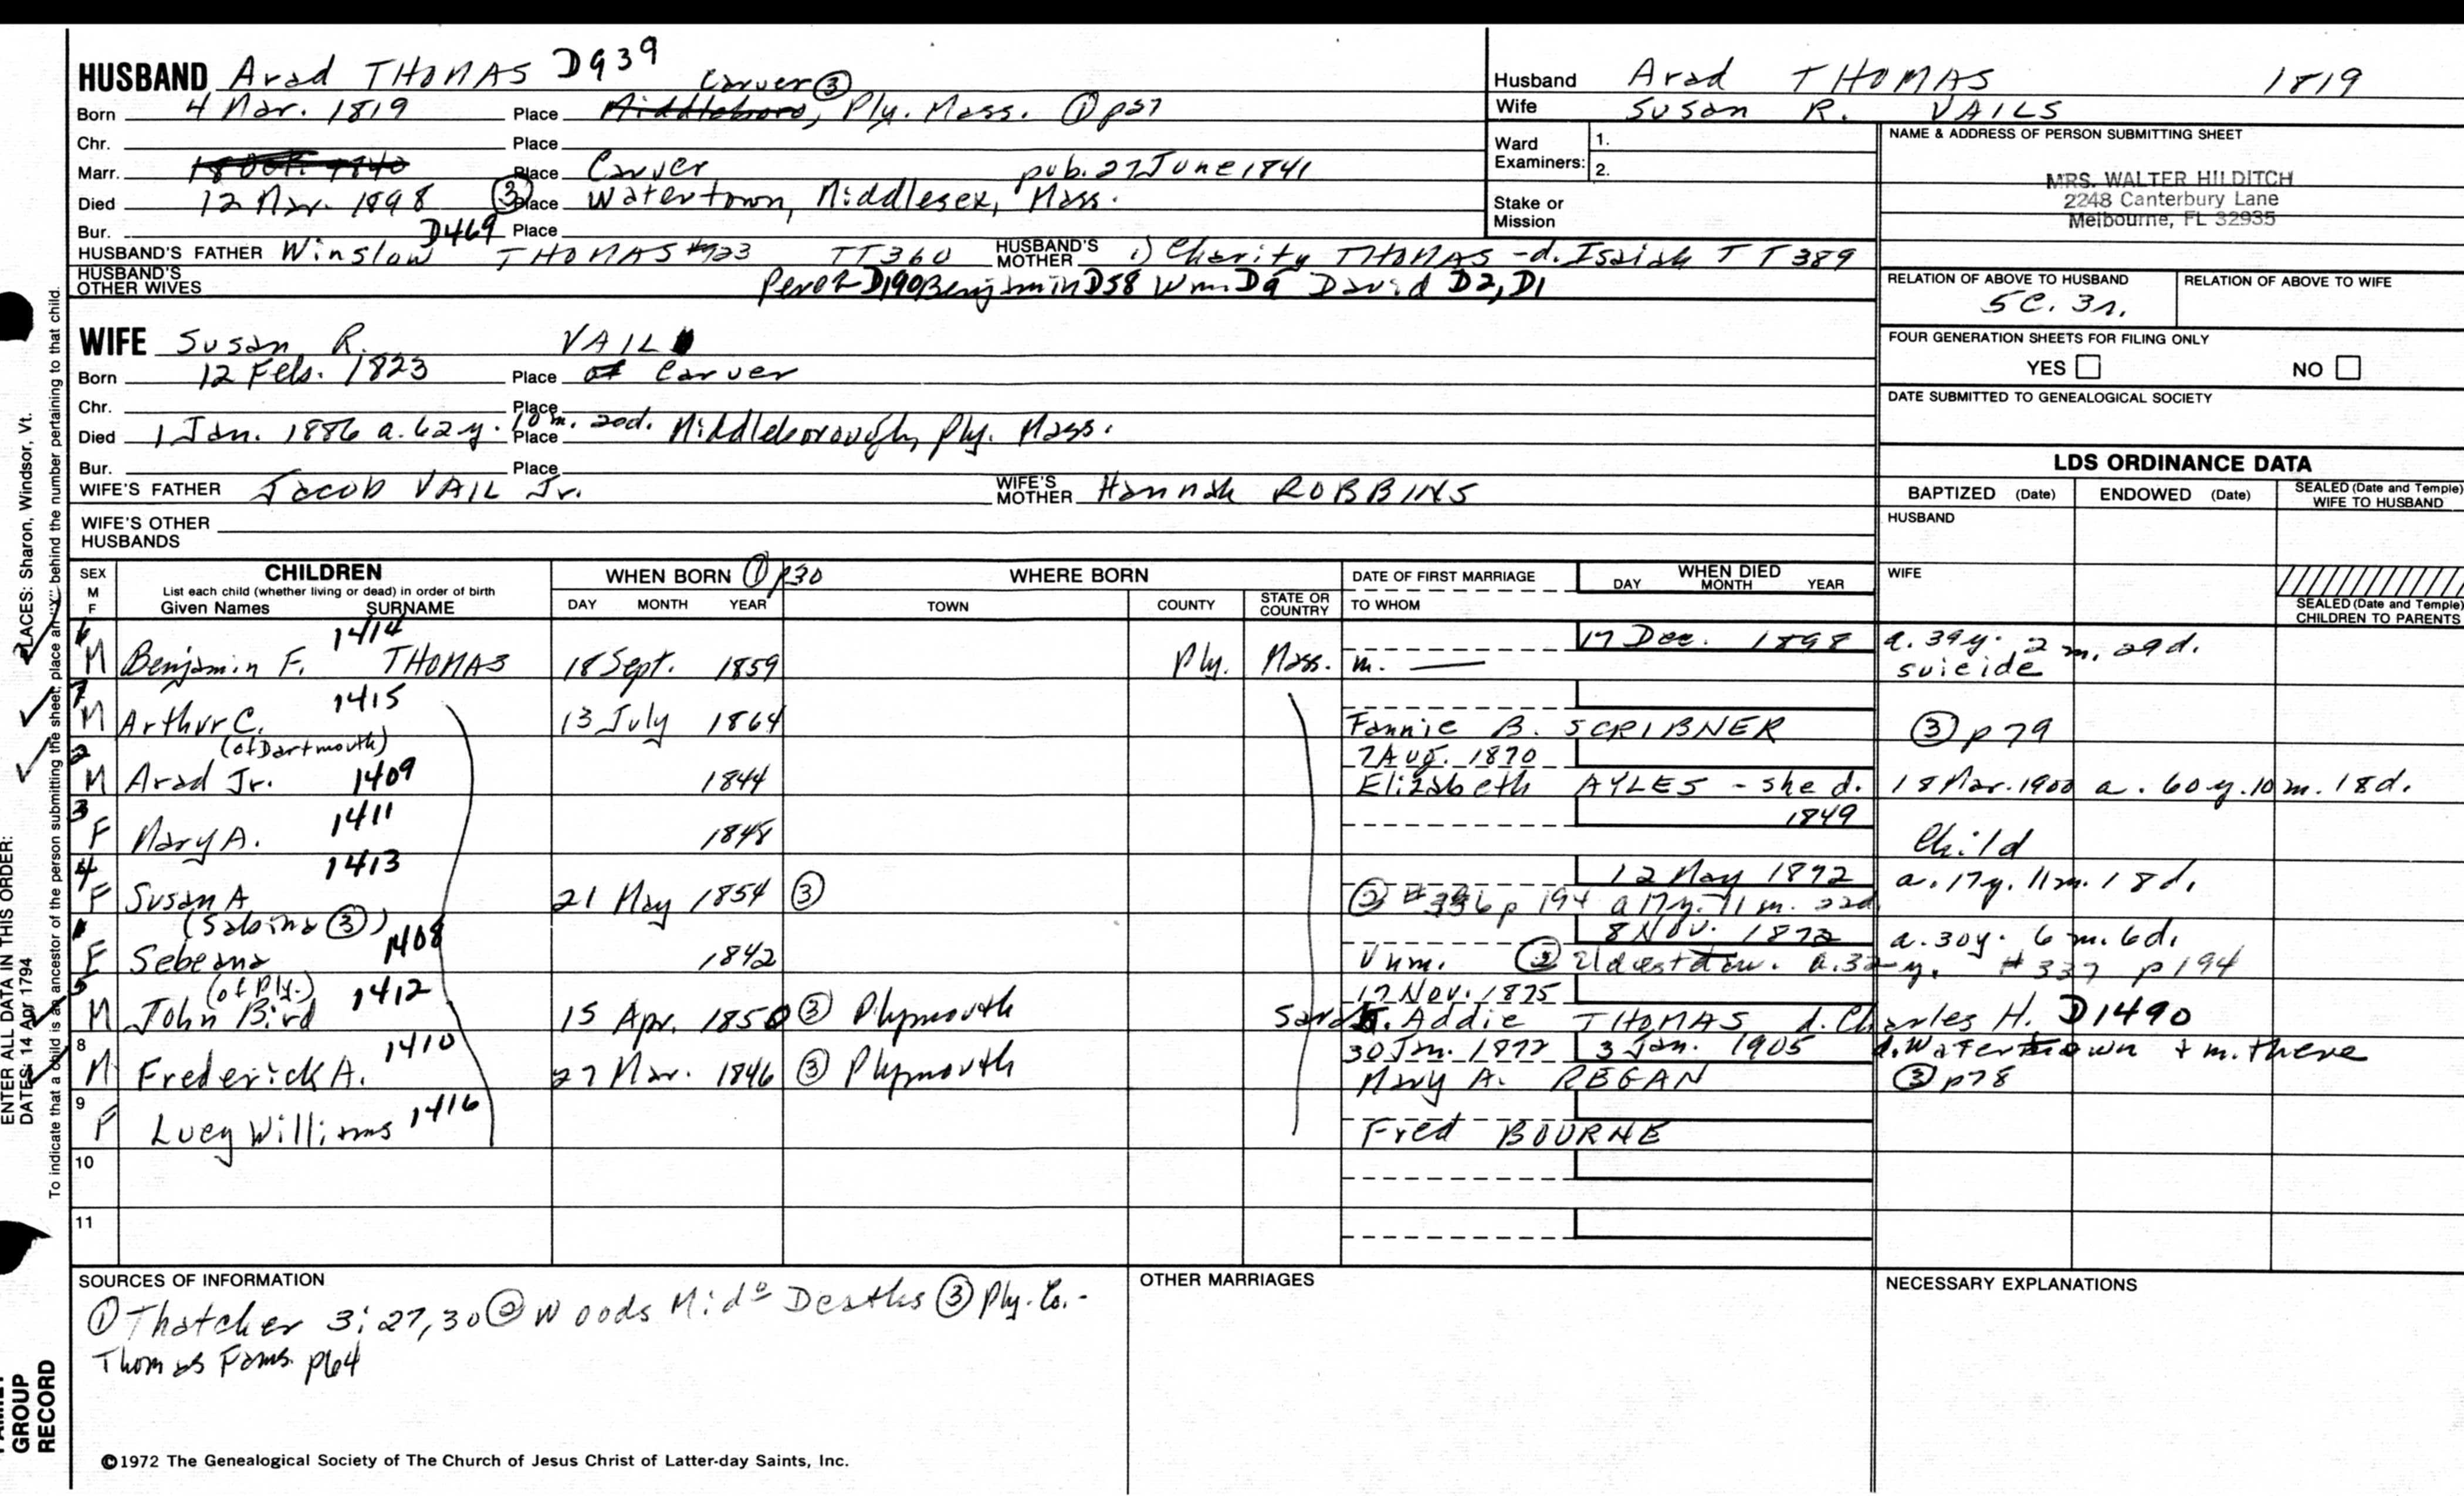 HUSBAND Arad THOMAS D939
Carver ③
Born 4 Mar. 1819 Place Middleboro, Ply. Mass. ① p27
Chr. Place
Marr. 18 Oct. 1840 Place Carver pub. 27 June 1841
Died 12 Mar. 1898 ③ Place Watertown, Middlesex, Mass.
Bur. Place
D469
HUSBAND'S FATHER Winslow THOMAS #923 TT360 HUSBAND'S MOTHER 1) Charity THOMAS - d. Isaiah TT389
HUSBAND'S OTHER WIVES Perez D190 Benjamin D58 Wm. D9 David D2, D1
WIFE Susan R. VAIL
Born 12 Feb. 1823 Place of Carver
Chr. Place
Died 1 Jan. 1886 a. 62 y. 10 m. 20d. Place Middleborough, Ply. Mass.
Bur. Place
WIFE'S FATHER Jacob VAIL Jr. WIFE'S MOTHER Hannah ROBBINS
WIFE'S OTHER HUSBANDS
Husband Arad THOMAS 1819
Wife Susan R. VAILS
Ward Examiners: 1.
2.
Stake or Mission
NAME & ADDRESS OF PERSON SUBMITTING SHEET
MRS. WALTER HILDITCH
2248 Canterbury Lane
Melbourne, FL 32935
RELATION OF ABOVE TO HUSBAND RELATION OF ABOVE TO WIFE
5C. 3r.
FOUR GENERATION SHEETS FOR FILING ONLY
YES NO
DATE SUBMITTED TO GENEALOGICAL SOCIETY
LDS ORDINANCE DATA
BAPTIZED (Date) ENDOWED (Date) SEALED (Date and Temple) WIFE TO HUSBAND
HUSBAND
WIFE
SEALED (Date and Temple) CHILDREN TO PARENTS
SEX M F
CHILDREN
List each child (whether living or dead) in order of birth
Given Names SURNAME
WHEN BORN ① p30
DAY MONTH YEAR
WHERE BORN
TOWN COUNTY STATE OR COUNTRY
DATE OF FIRST MARRIAGE
TO WHOM
WHEN DIED
DAY MONTH YEAR
6 M Benjamin F. THOMAS 1414 18 Sept. 1859 Ply. Mass. m. — 17 Dec. 1898 a. 39y. 2 m. 29d.
suicide
7 M Arthur C. 1415 13 July 1864 Fannie B. SCRIBNER ③ p79
(of Dartmouth) 7 Aug. 1870
2 M Arad Jr. 1409 1844 Elizabeth AYLES - she d. 18 Mar. 1900 a. 60 y. 10 m. 18d.
3 F Mary A. 1411 1848 1849 Child
4 F Susan A 1413 21 May 1854 ③ 12 May 1872 a. 17y. 11m. 18d.
② #336 p 194 a 17 y. 11 m. 22d.
(Sabina ③) 8 Nov. 1872 a. 30y. 6 m. 6d.
1 F Sebeana 1408 1842 Unm. ② Eldest dau. a. 32 y. #337 p 194
(of Ply.) 17 Nov. 1875
5 M John Bird 1412 15 Apr. 1850 ③ Plymouth Addie THOMAS d. Charles H. D1490
30 Jan. 1872 3 Jan. 1905 d. Watertown + m. there
8 M Frederick A. 1410 27 Mar. 1846 ③ Plymouth Mary A. REGAN ③ p78
9 F Lucy Williams 1416 Fred BOURNE
10
11
SOURCES OF INFORMATION
① Thatcher 3:27,30 ② Woods Mido Deaths ③ Ply. Co.-
Thomas Fams. p64
OTHER MARRIAGES
NECESSARY EXPLANATIONS
©1972 The Genealogical Society of The Church of Jesus Christ of Latter-day Saints, Inc.
ENTER ALL DATA IN THIS ORDER:
DATES: 14 Apr 1794
PLACES: Sharon, Windsor, Vt.
To indicate that a child is an ancestor of the person submitting the sheet, place an "X" behind the number pertaining to that child.
GROUP
RECORD